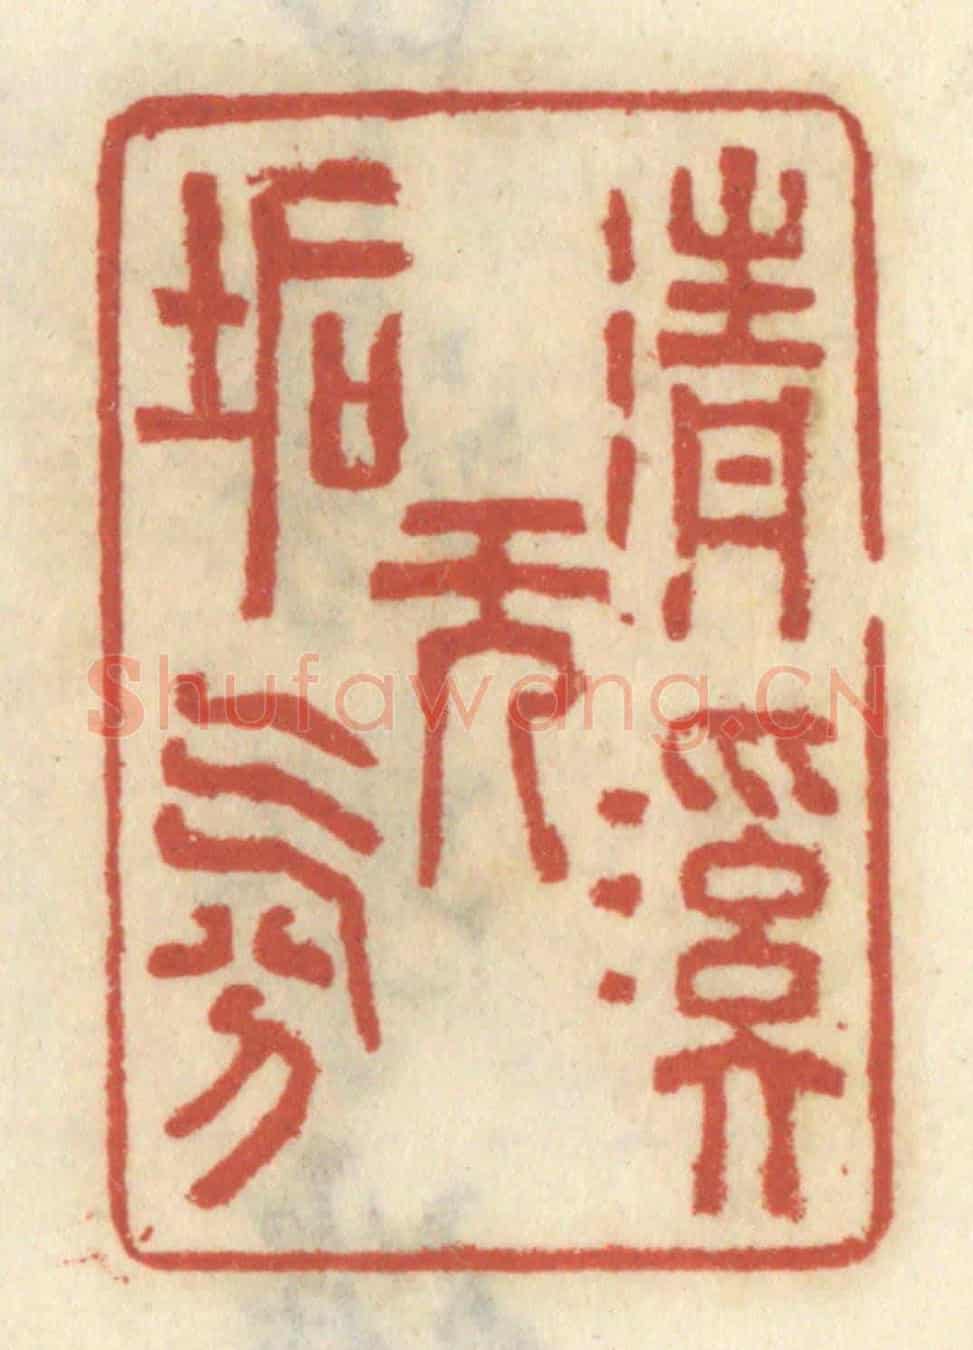 清溪
无
垢氛
Shufawang.CN